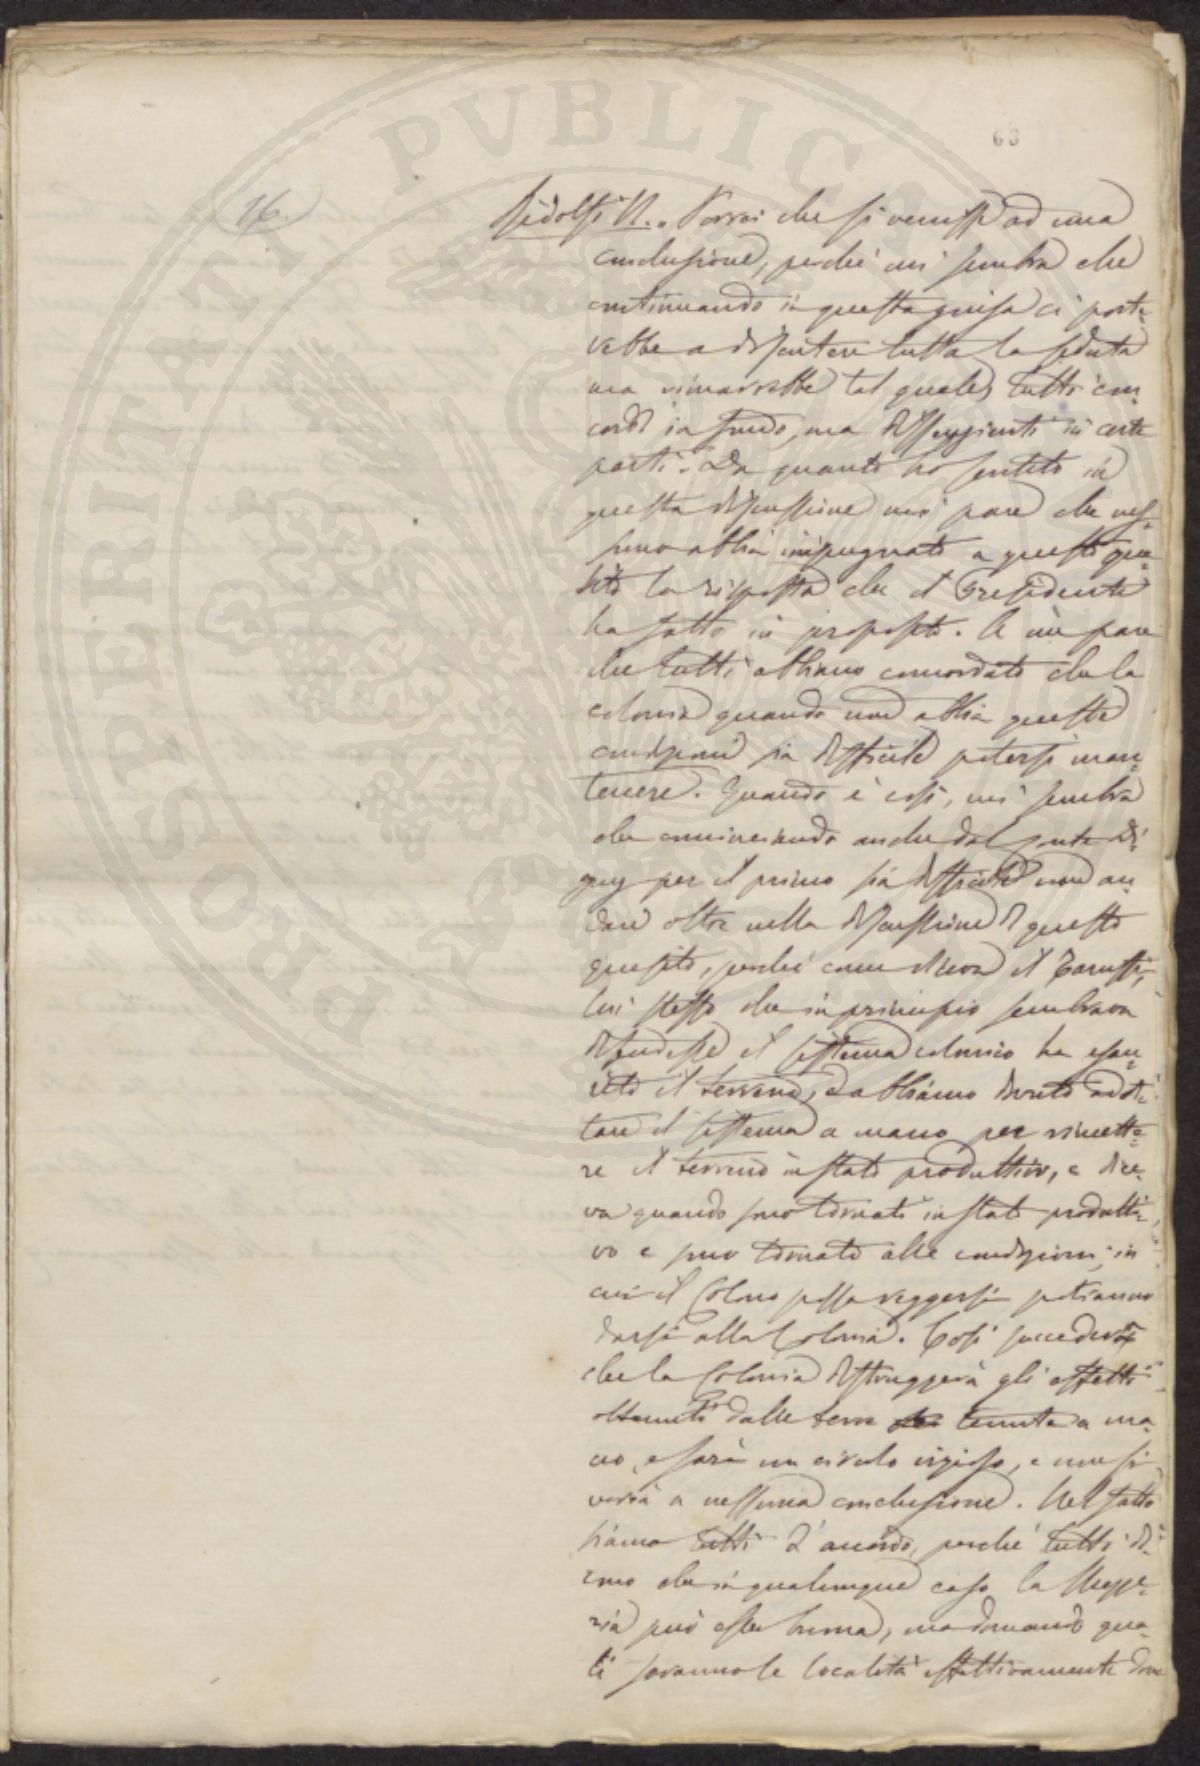 63
16.
Ridolfi N. Vorrei che si venisse ad una
conclusione, perchè mi sembra che
continuando in questa guisa ci porte=
rebbe a discutere tutta la seduta
ma rimarrebbe tal quale, tutti con=
cordi in fondo, ma dissenzienti in certe
parti. Da quanto ho sentito in
questa discussione mi pare che nes=
suno abbia impugnato a questo que=
sito la risposta che il Presidente
ha fatto in proposito. A me pare
che tutti abbiano concordato che la
colonia quando non abbia queste
condizioni sia difficile potersi man=
tenere. Quando è così, mi sembra
che cominciando anche dal Conte Di=
gny per il primo sia difficile non an=
dare oltre nella discussione di questo
quesito, perchè come diceva il Tarussi,
lui stesso che in principio sembrava
difendesse il sistema colonico ha esau=
rito il terreno, e abbiamo dovuto adot=
tare il sistema a mano per rimette=
re il terreno in stato produttivo, e dice=
va quando sono tornati in stato produtti=
vo e sono tornate alle condizioni in
cui il Colono possa reggersi potranno
darsi alla Colonia. Così succederà
che la Colonia distruggerà gli effetti
ottenuti dalle terre tenute a ma=
no, e sarà un circolo vizioso, e non si
verrà a nessuna conclusione. Nel fatto
siamo tutti d'accordo, perchè tutti di=
cono che in qualunque caso la Mezze=
ria può esser buona, ma domando qua=
li saranno le località effettivamente dove
PROSPERITATI PVBLICAE